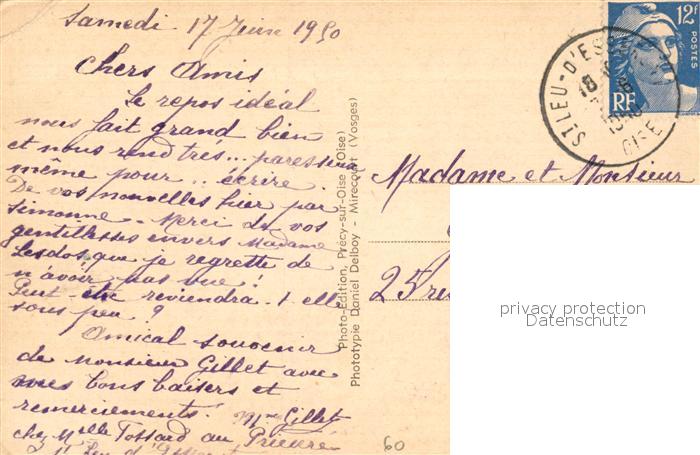 Samedi 17 Juin 1950
Chers Amis
Le repos idéal
nous fait grand bien
et nous rend très... paresseux
même pour.. écrire.
De vos nouvelles hier par
Simonne. Merci de vos
gentillesses envers Madame
Lesdos, que je regrette de
n'avoir pas vue!
Peut être reviendra-t-elle
sous peu?
Amical souvenir
de Monsieur Gillet avec
mes bons baisers et
remerciements.
Mme Gillet
chez Melle Tossard au Prieuré
St Leu d'
Photo-Edition, Précy-sur-Oise (Oise)
Phototypie Daniel Delboy - Mirecourt (Vosges)
12F
POSTES
RF
ST LEU-D'ES
OISE
18
Madame et Monsieur
25 rue
60
privacy protection
Datenschutz